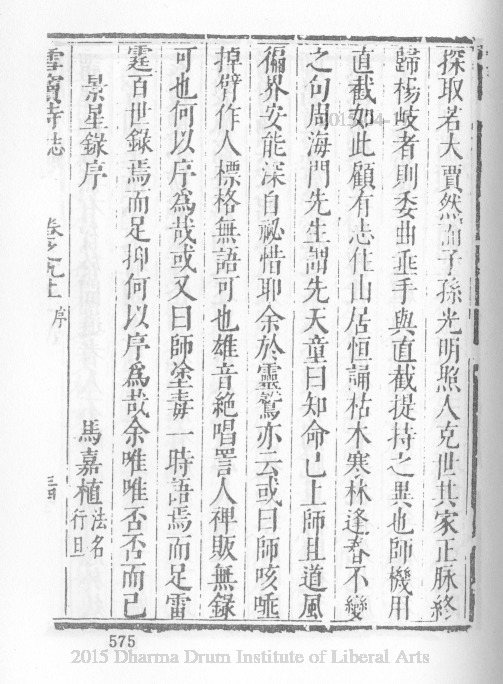 探取若大賈然而子孫光明照人克世其家正脉終
歸楊岐者則委曲垂手與直截提持之異也師機用
直截如此顧有志住山居恒誦枯木寒林逢春不變
之句周海門先生謂先天童曰知命已上師且道風
徧界安能深自祕惜耶余於靈鷲亦云或曰師咳唾
掉臂作人標格無語可也雄音絶唱詈人裨販無錄
可也何以序為哉或又曰師塗毒一時語焉而足雷
霆百世錄焉而足抑何以序為哉余唯唯否否而已
景星錄序
馬嘉植法名行旦
雪竇寺誌 卷之九上 序
575
2015 Dharma Drum Institute of Liberal Arts